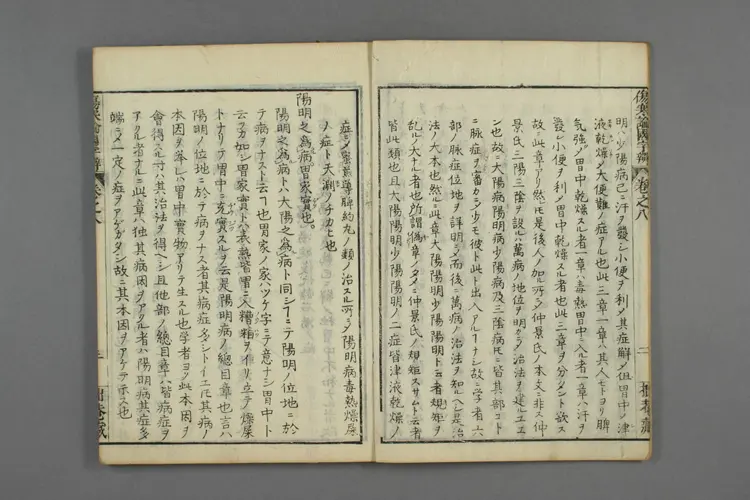 明ハ少陽病已ニ汗ヲ發シ小便ヲ利メ其症解メ但胃中ノ津
液乾燥メ大便難ノ症アル也此三章一章ハ其人モトヨリ脾
氣強ノ胃中乾燥スル者一章ハ毒熱胃中ニアタンド一章ハ汗ヲ
發シ小便ヲ利メ胃中乾燥スル者也此三章ヲ分タント欲ス
故ニ此章アリ然レ是後人ノ加ル所ラン仲景氏ノ本文ニ非ス仲
景氏三陽三陰ヲ設ルハ萬病ノ地位ヲ明ラメ治法ヲ建ルエエ
ン也故ニ太陽病陽明病少陽病及三陰病ニ皆其部コト
ニ脉症ヲ審ニシ少モ彼ト此ト出入アルーナシ故ニ學者六
部ノ脉症位地ヲ詳明シメ而後ニ萬病ノ治法ヲ知ルヘシ是治
法ノ大本也然ルニ此章大陽陽明少陽陽明ト云者規矩ヲ
乱ルノ大ナル者也所謂偽章ノタメニ仲景氏ノ規矩スサムト云者
皆此類也且大陽陽明少陽陽明ノ二症皆津液乾燥ノ
症ニメ
脾約丸ノ類ノ治スル所ラ陽明病毒熱燥屎
ノ症ト天渕ノチカヒ也
陽明之為病胃家實也。
陽明之為病トハ大陽之為病ト同シーニテ陽明ノ位地ニ於
テ病ヲナスト云ー也胃家ノ家ハツケ字ニテ意ナシ胃中ト
云フカ如シ胃家實トハ表熱皆胃ニ入糟粕ヲイリ立テ燥屎
トナリテ胃中ニ充實スルヲ云是陽明病ノ總目章也言ハ
陽明ノ位地ニ於テ病ヲナス者其病症多ダントイエ㪽其病ノ
本因ヲ笨レハ胃中實物アリテ生スル也學者ヨク此本因ヲ
會得スル寸ハ其治法ヲ得ヘシ且他部ノ總目章ハ皆病症ヲ
アクル者ナルニ此章ハ獨其病因ヲアクル者ハ陽明病其症多
端ニメ一定ノ症ヲアゲガタシ故ニ其本因ヲアケテ示ス也
卷之八
二
三